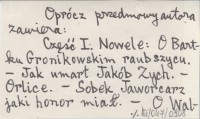 Oprócz przedmowy autora
zawiera:
Część I. Nowele: O Bart-
ku Gronikowskim raubszycu.
– Jak umarł Jakób Zych. –
Orlice. – Sobek Jaworcarz
jaki honor miał. – O Wal-